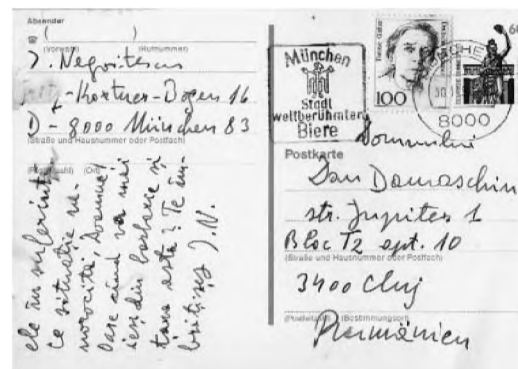 Absender
(Vorwahl) (Rufnummer)
I. Negoițescu
-Kortner-Bogen 16
D - 8000 München 83
(Straße und Hausnummer oder Postfach)
(Postleitzahl) (Ort)
ce situație ne-
norocită, Doamne!
Oare când va mai
ieși din
țara asta? Te îm-
brățișez I.N.
München
Stadt
weltberühmter
Biere
100
60
8000
Postkarte
Domnului
Dan Damaschin
str. Jupiter 1
Bloc T2 apt. 10
(Straße und Hausnummer oder Postfach)
3400 Cluj
(Postleitzahl) (Bestimmungsort)
Rumänien